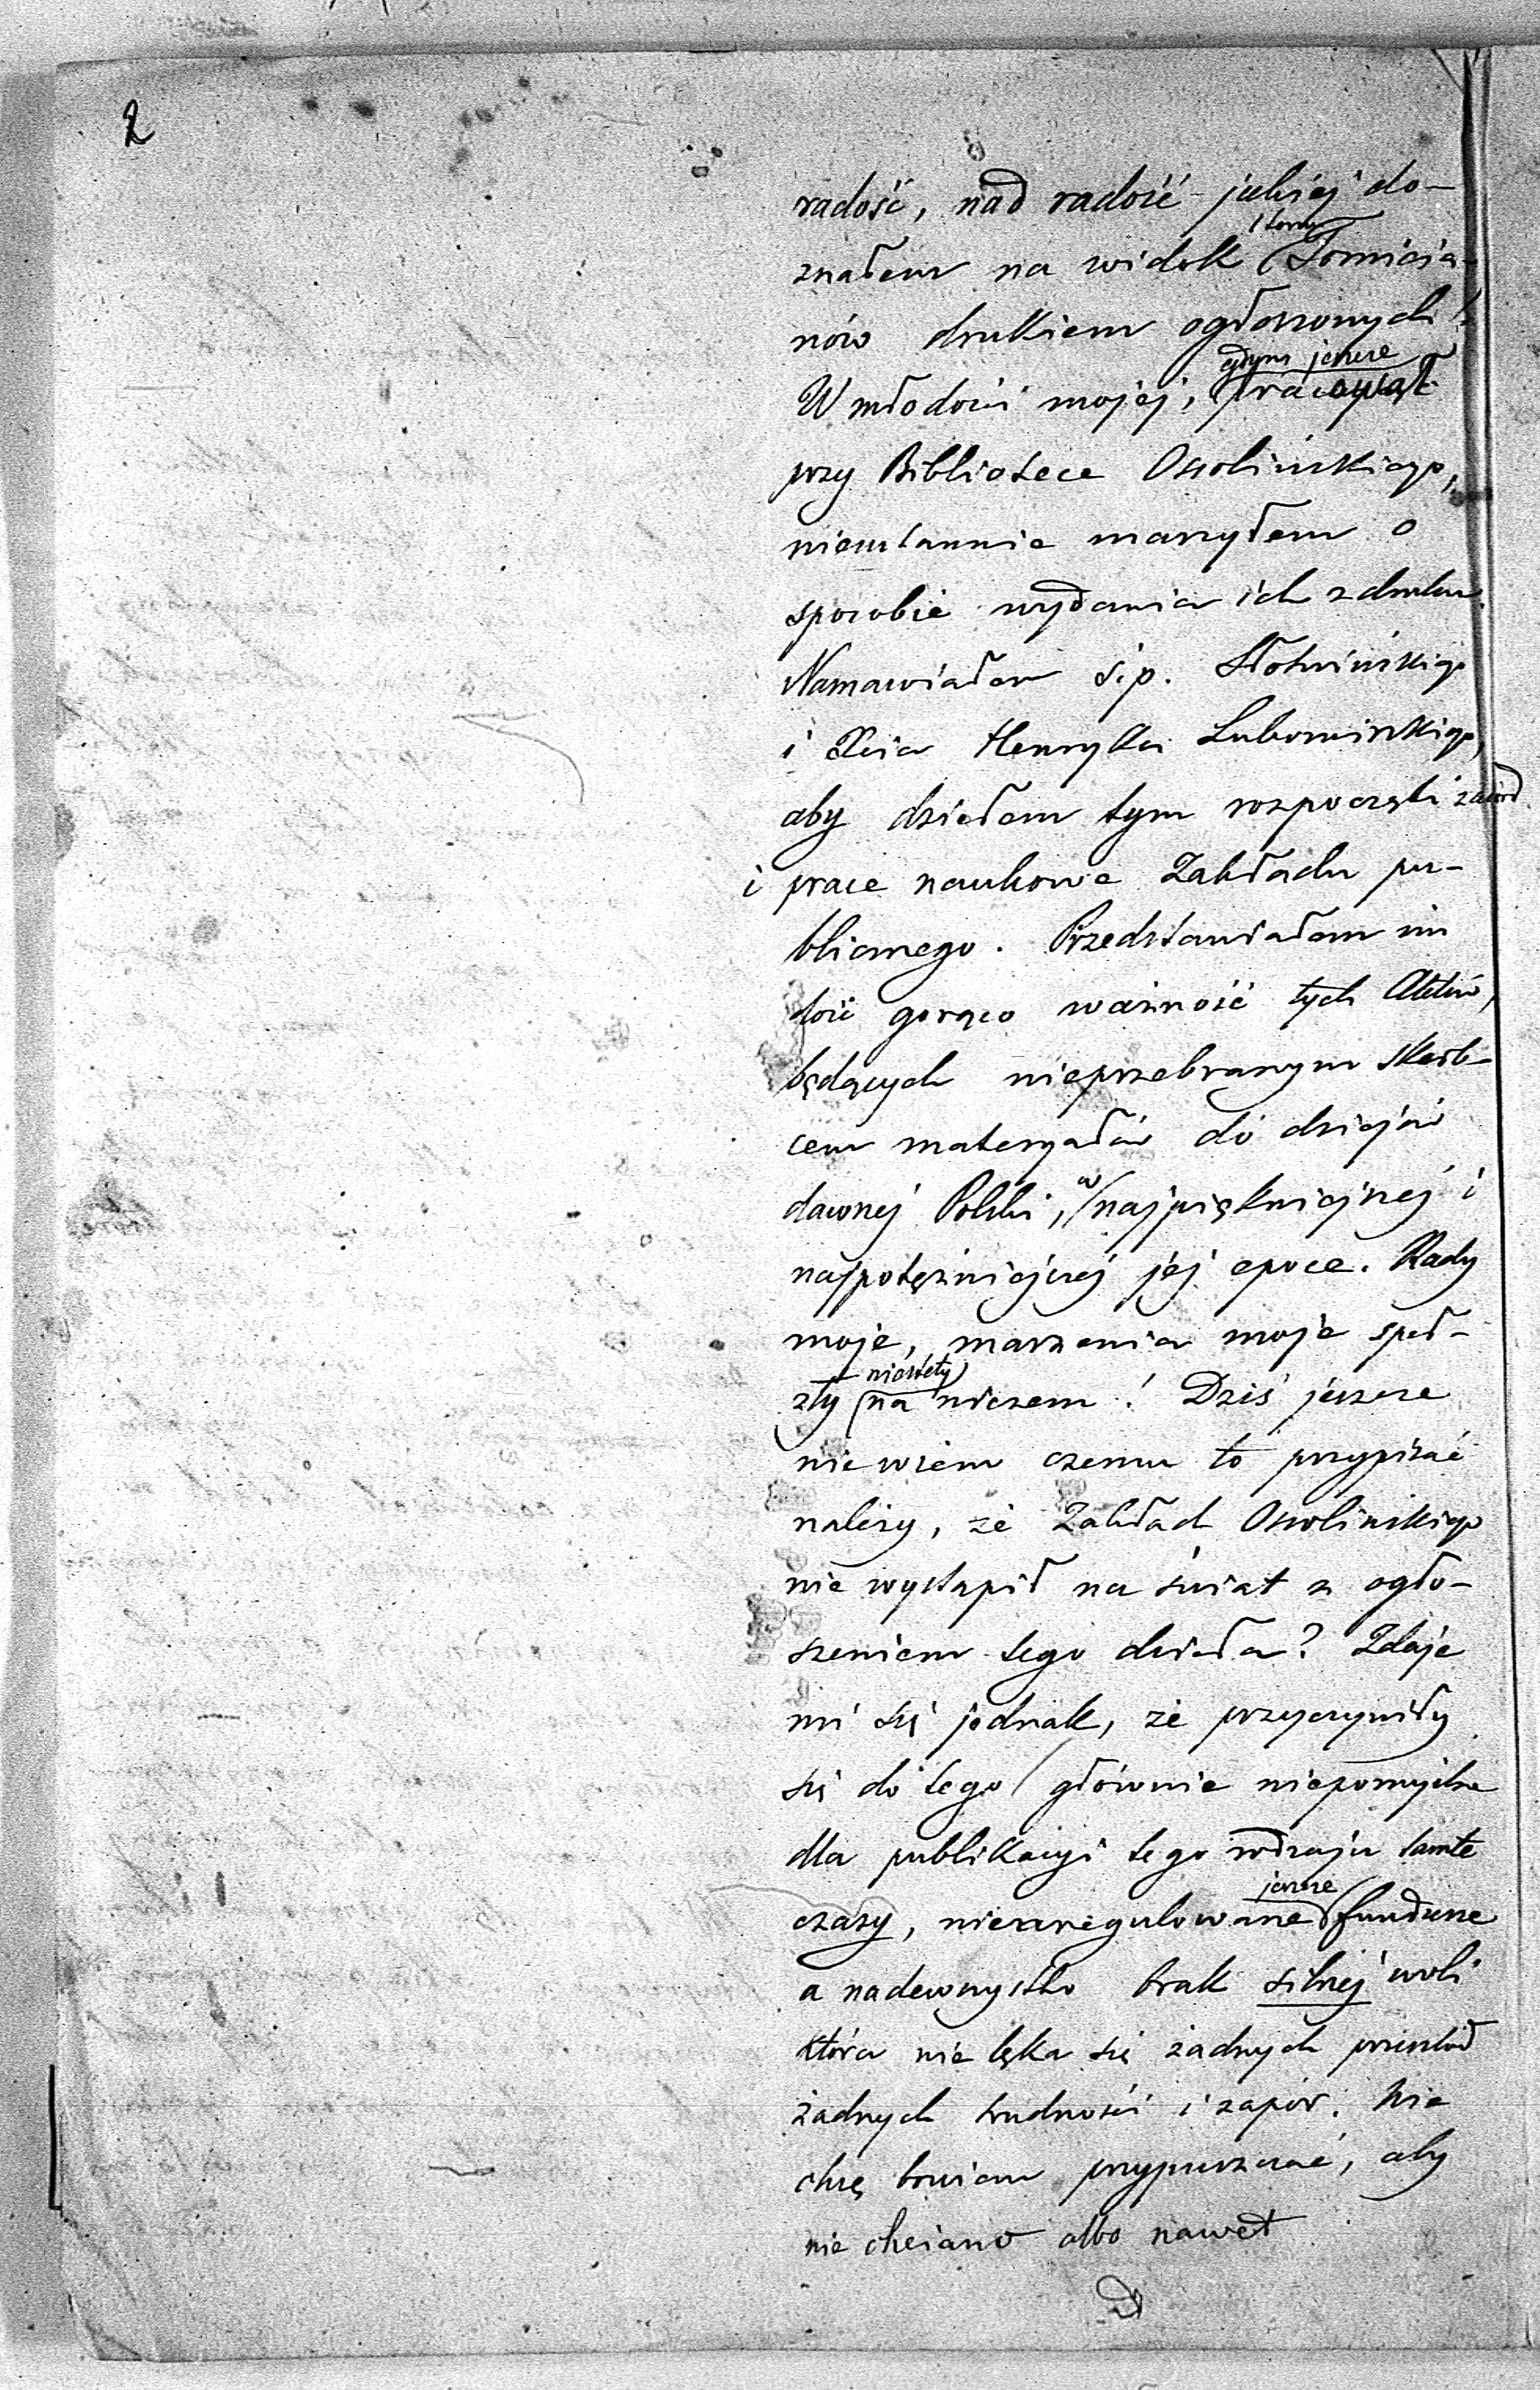 2
radość, nad radość jakiej do-
znałem na widok Tomicia-
nów drukiem ogłoszonych!
gdym jeszcze
W młodości mojej, pracował
przy Bibliotece Ossolińskiego,
nieustannie marzyłem o
sposobie wydania ich z druku.
Namawiałem ś.p. Słotwińskiego
i Xcia Henryka Lubomirskiego,
aby dziełem tym rozpoczęli zawód
i prace naukowe Zakładu pu-
blicznego. Przedstawiałem im
dość gorąco ważność tych Aktów,
będących nieprzebranym skarb-
cem materyałów do dziejów
dawnej Polski, w najpiękniejszej i
najpotężniejszej jej epoce. Rady
moje, marzenia moje speł-
niestety
zły na niczem! Dziś jeszcze
nie wiem czemu to przypisać
należy, że Zakład Ossolińskiego
nie wystąpił na świat z ogło-
szeniem tego dzieła? Zdaje
mi się jednak, że przyczyniły
się do tego głównie niepomyślne
dla publikacyi tego rodzaju tamte
jeszcze
czasy, nieuregulowane fundusze
a nadewszystko brak silnej woli
która nie lęka się żadnych przeszkód
żadnych trudności i zapór. Nie
chcę bowiem przypuszczać, aby
nie chciano albo nawet